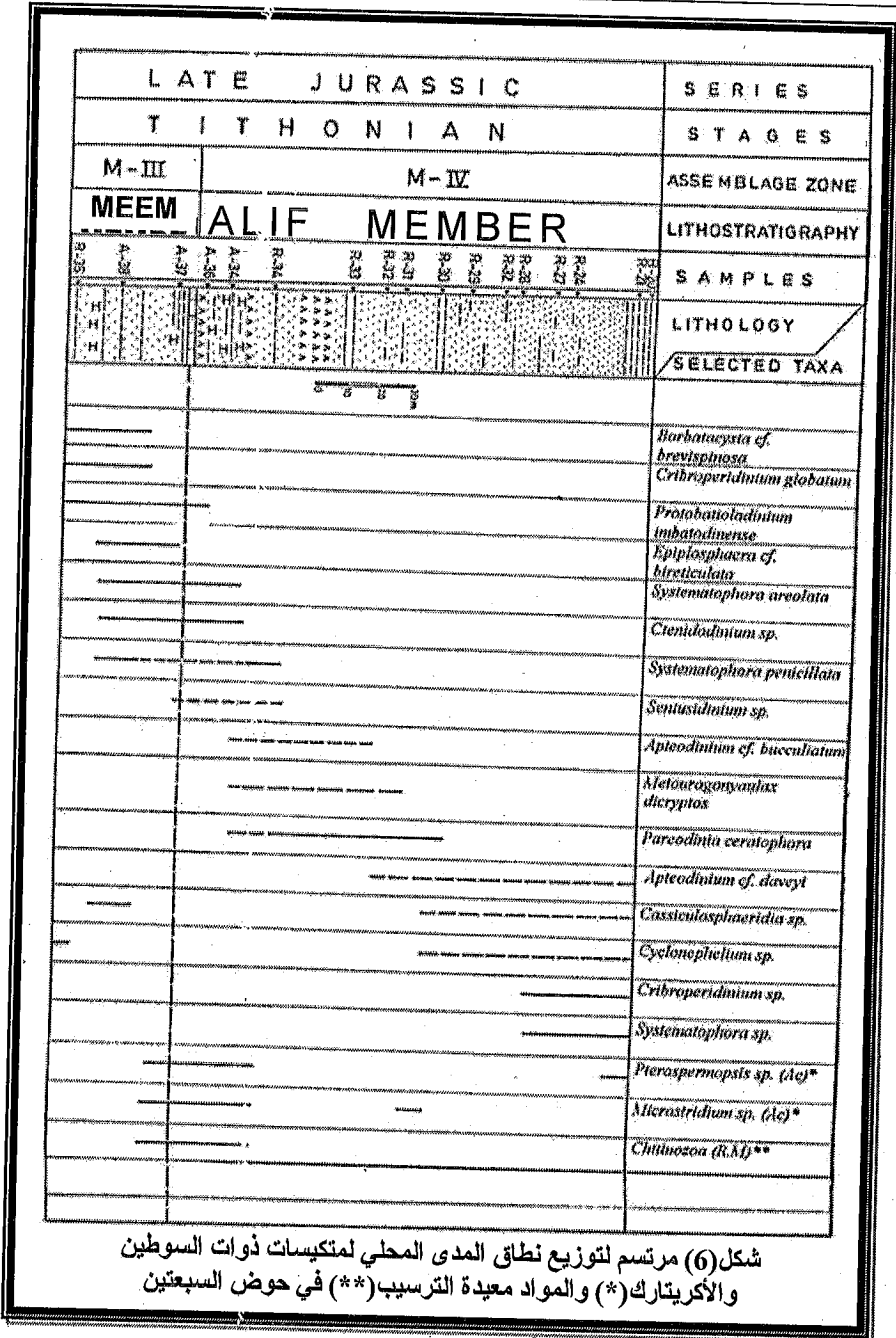 LATE JURASSIC SERIES
TITHONIAN STAGES
M-III M-IV ASSEMBLAGE ZONE
MEEM ALIF MEMBER LITHOSTRATIGRAPHY
R-35 A-36 A-37 A-38 A-34 R-34 R-33 R-32 R-31 R-30 R-29 R-28 R-27 R-26 SAMPLES
LITHOLOGY
SELECTED TAXA
Barbatacysta cf.
brevispinosa
Cribroperidinium globatum
Protobatioladinium
imbatodinense
Epiplosphaera cf.
bireticulata
Systematophora areolata
Ctenidodinium sp.
Systematophora penicillata
Sentusidinium sp.
Apteodinium cf. bucculiatum
Metourogonyaulax
dicryptos
Pareodinia ceratophora
Apteodinium cf. daveyi
Cassiculosphaeridia sp.
Cyclonephelium sp.
Cribroperidinium sp.
Systematophora sp.
Pterospermopsis sp. (Ac)*
Microstridium sp. (Ac)*
Chitinozoa (R.M)**
شكل(6) مرتسم لتوزيع نطاق المدى المحلي لمتكيسات ذوات السوطين
والأكريتارك(*) والمواد معيدة الترسيب(**) في حوض السبعتين